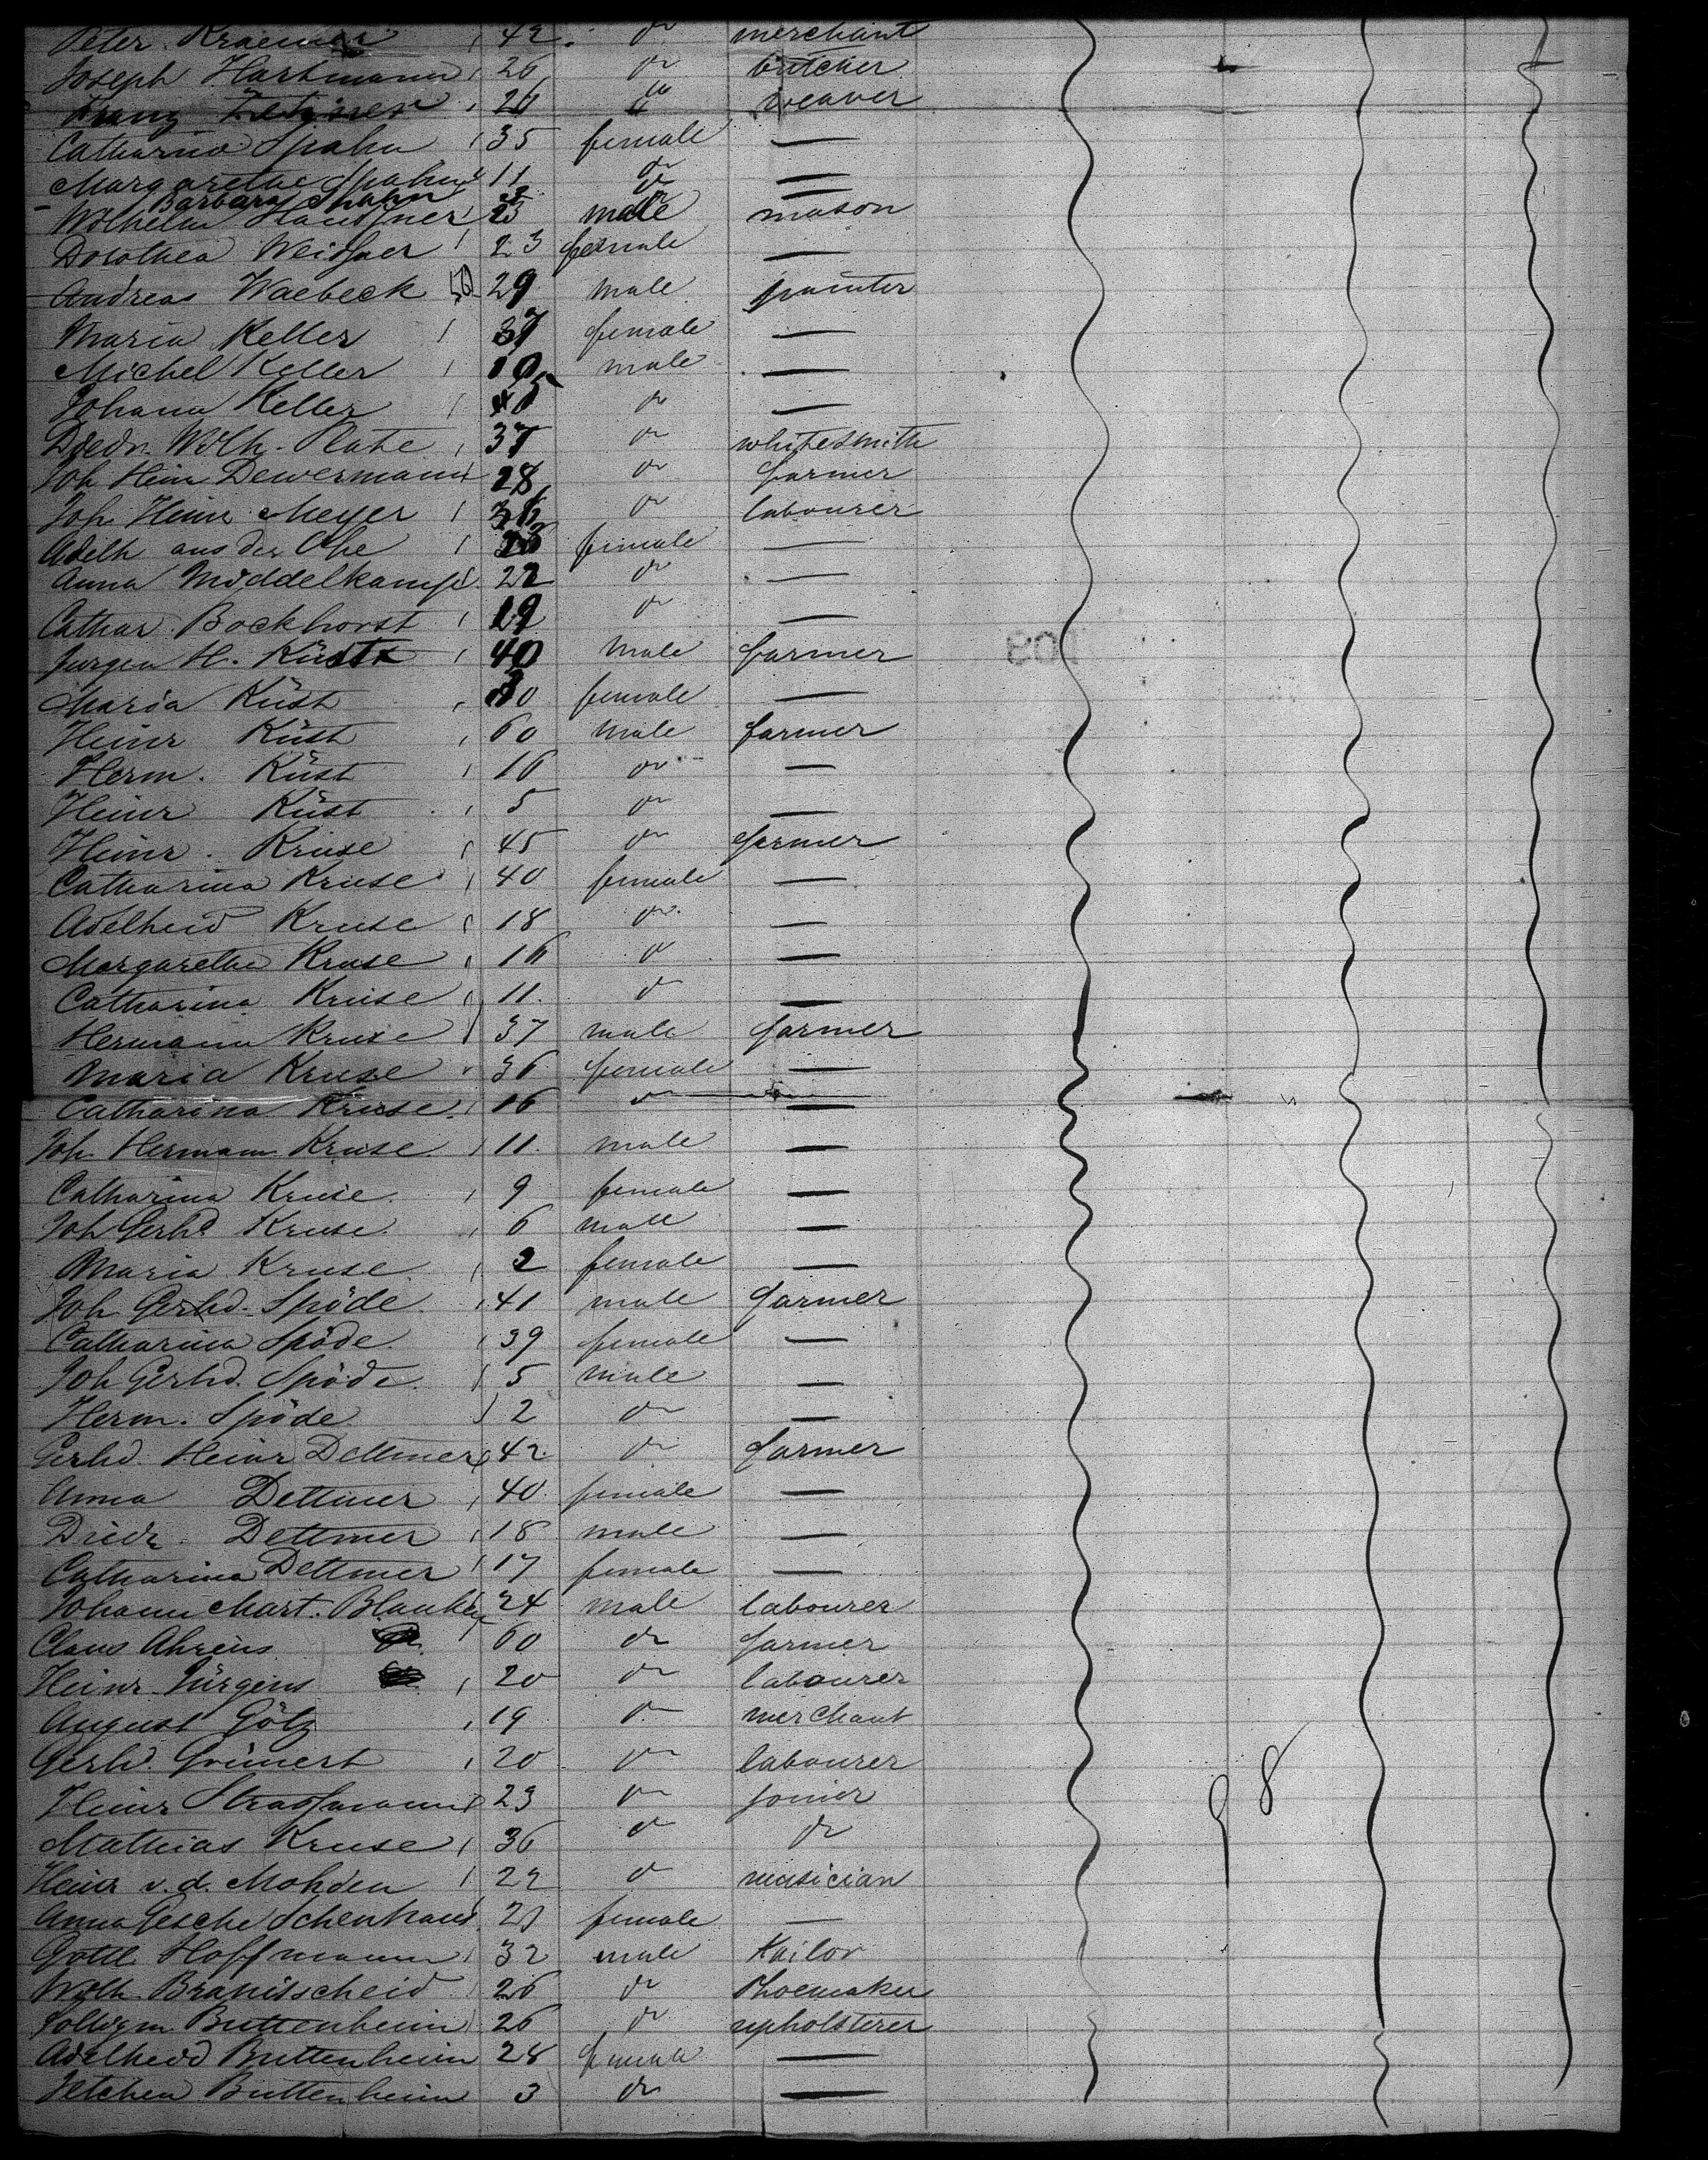 Peter Kraemer 42 do merchant
Joseph Hartmann 26 do butcher
Franz 26 do weaver
Catharina Spahn 35 female —
Margarethe Spahn 11 do —
Barbara Spahn do —
Wilhelm 23 male mason
Dorothea Weissner 23 female —
Andreas Waebeck 29 male painter
Maria Keller 37 female —
Michel Keller 10 male —
Johann Keller do —
Diedr. Wilh. Plate 37 do whitesmith
Joh Heinr Dewermann 28 do farmer
Joh Heinr Meyer 36 do labourer
Adelh aus der Ohe female —
Anna Middelkamp 22 do —
Cathar. Bockhorst 19 do —
Jurgen H. Küst 40 male farmer
Maria Küst 30 female —
Heinr Küst 60 male farmer
Herm. Küst 16 do —
Heinr Küst 5 do —
Heinr. Kruse 45 do farmer
Catharina Kruse 40 female —
Adelheid Kruse 18 do —
Margarethe Kruse 16 do —
Catharina Kruse 11 do —
Hermann Kruse 37 male farmer
Maria Kruse 36 female —
Catharina Kruse 16 do —
Joh. Hermann Kruse 11 male —
Catharina Kruse 9 female —
Joh Gerhd Kruse 6 male —
Maria Kruse 2 female —
Joh Gerhd. Spöde 41 male farmer
Catharina Spöde 39 female —
Joh Gerhd. Spöde 5 male —
Herm. Spöde 2 do —
Gerhd. Heinr Dettmer 42 do farmer
Anna Dettmer 40 female —
Diedr. Dettmer 18 male —
Catharina Dettmer 17 female —
Johann Mart. Blanken 24 male labourer
Claus Ahrens 60 do farmer
Heinr Jürgens 20 do labourer
August Götz 19 do merchant
Gerhd. Grünert 20 do labourer
Heinr Strassmann 23 do joiner
Mathias Kruse 36 do do
Heinr v. d. Mohden 22 do musician
Anna Gesche Schenhaus 21 female —
Gottl. Hoffmann 32 male tailor
Wilh. Branscheid 26 do shoemaker
Buttenheim 26 do upholsterer
Adelheid Buttenheim 28 female —
Jetchen Buttenheim 3 do —
98